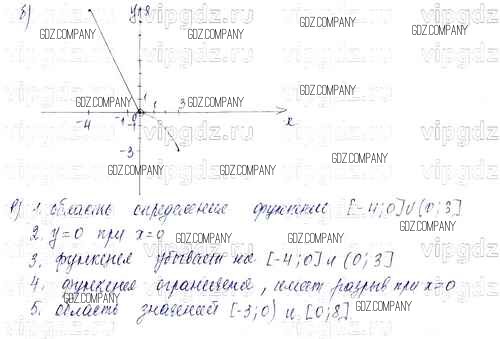 б)
y
8
GDZ.COMPANY vipgdz.ru GDZ.COMPANY vipgdz.ru
GDZ.COMPANY GDZ.COMPANY GDZ.COMPANY
-4 -1 0 1 3 x
-1
-3
GDZ.COMPANY GDZ.COMPANY GDZ.COMPANY
в) 1. область определения функции [-4;0]U(0;3]
2. y=0 при x=0
3. функция убывает на [-4;0] и (0;3]
4. функция ограничена, имеет разрыв при x=0
5. область значений [-3;0) и [0;8]